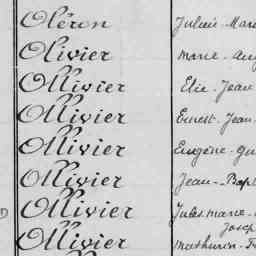 Oléron Julien - Mar
Olivier Marie - Aug
Ollivier Elie - Jean
Ollivier Ernest - Jean
Ollivier Eugène - Gu
Ollivier Jean - Bapt
Ollivier Jules Marie -
Joseph
Ollivier Mathurin - Fr